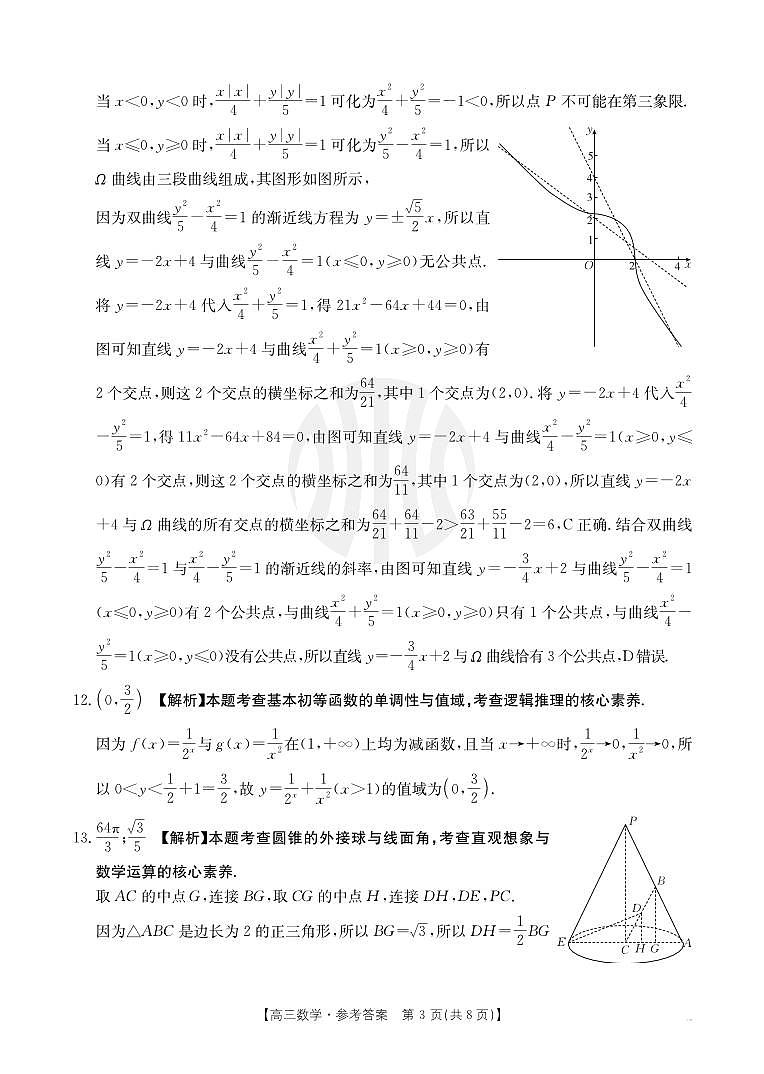 当 x<0,y<0 时,x|x|/4+y|y|/5=1 可化为x²/4+y²/5=-1<0,所以点 P 不可能在第三象限.
当 x≤0,y≥0 时,x|x|/4+y|y|/5=1 可化为y²/5-x²/4=1,所以
Ω 曲线由三段曲线组成,其图形如图所示,
因为双曲线y²/5-x²/4=1 的渐近线方程为 y=±√5/2x,所以直
线 y=-2x+4 与曲线y²/5-x²/4=1(x≤0,y≥0)无公共点.
将 y=-2x+4 代入x²/4+y²/5=1,得 21x²-64x+44=0,由
图可知直线 y=-2x+4 与曲线x²/4+y²/5=1(x≥0,y≥0)有
y
5
4
3
2
1
O
2
4
x
2 个交点,则这 2 个交点的横坐标之和为64/21,其中 1 个交点为(2,0).将 y=-2x+4 代入x²/4
-y²/5=1,得 11x²-64x+84=0,由图可知直线 y=-2x+4 与曲线x²/4-y²/5=1(x≥0,y≤
0)有 2 个交点,则这 2 个交点的横坐标之和为64/11,其中 1 个交点为(2,0),所以直线 y=-2x
+4 与 Ω 曲线的所有交点的横坐标之和为64/21+64/11-2>63/21+55/11-2=6,C 正确.结合双曲线
y²/5-x²/4=1 与x²/4-y²/5=1 的渐近线的斜率,由图可知直线 y=-3/4x+2 与曲线y²/5-x²/4=1
(x≤0,y≥0)有 2 个公共点,与曲线x²/4+y²/5=1(x≥0,y≥0)只有 1 个公共点,与曲线x²/4-
y²/5=1(x≥0,y≤0)没有公共点,所以直线 y=-3/4x+2 与 Ω 曲线恰有 3 个公共点,D 错误.
12.(0,3/2) 【解析】本题考查基本初等函数的单调性与值域,考查逻辑推理的核心素养.
因为 f(x)=1/2ˣ与 g(x)=1/x²在(1,+∞)上均为减函数,且当 x→+∞时,1/2ˣ→0,1/x²→0,所
以 0<y<1/2+1=3/2,故 y=1/2ˣ+1/x²(x>1)的值域为(0,3/2).
13.64π/3;√3/5 【解析】本题考查圆锥的外接球与线面角,考查直观想象与
数学运算的核心素养.
取 AC 的中点 G,连接 BG,取 CG 的中点 H,连接 DH,DE,PC.
因为△ABC 是边长为 2 的正三角形,所以 BG=√3,所以 DH=1/2BG
P
B
D
E
C
H
G
A
【高三数学·参考答案 第 3 页(共 8 页)】